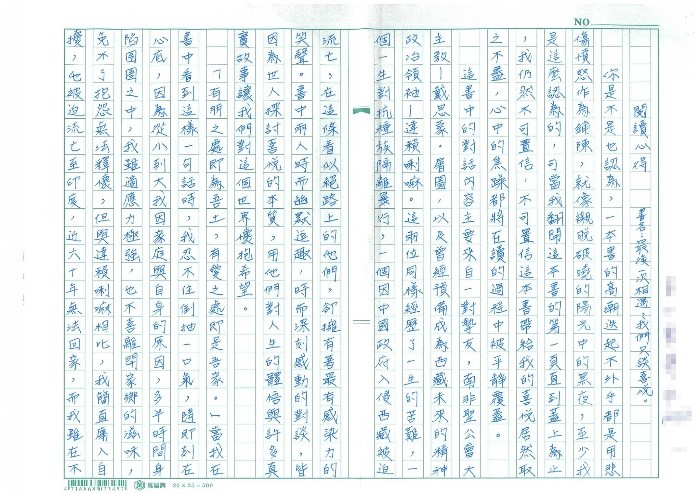 NO
閱讀心得　書名：最後一次相遇，我們只談喜悅。
你是不是也認為，一本書的高潮迭起不外乎都是用悲
傷憤怒作為鋪陳，就像襯脫破曉的陽光中的黑夜，至少我
是這麼認為的，可當我翻開這本書的第一頁直到蓋上為止
，我仍然不可置信，不可置信這本書帶給我的喜悅居然取
之不盡，心中的焦躁都將在讀的過程中被平靜覆蓋。
這書中的對話內容主要來自一對摯友，南非聖公會大
主教—戴思蒙。屠圖，以及曾經預備成為西藏未來的精神
政治領袖—達賴喇嘛。這兩位同樣經歷了一生的苦難，一
個一生對抗種族隔離暴行，一個因中國政府入侵西藏被迫
流亡，在這條看似絕路上的他們，卻擁有著最有感染力的
笑聲。書中兩人時而幽默逗趣，時而深刻感動的對談，皆
因為世人探討喜悅的本質，用他們對人生的體悟與許多真
實故事讓我們對這個世界懷抱希望。
「有朋之處即為吾土，有愛之處即是吾家。」當我在
書中看到這樣一句話時，我忍不住倒抽一口氣，隨即刻在
心底，因為從小到大我因家庭與自身的原因，多半時間身
陷囹圄之中，我雖適應力極強，也不喜離開家鄉的滋味，
免不了抱怨無法獲優，但與達賴喇嘛相比，我簡直庸人自
擾，他被迫流亡至印度，近六十年無法回家，而我雖在不
4716868773457
萬國牌 20×25=500